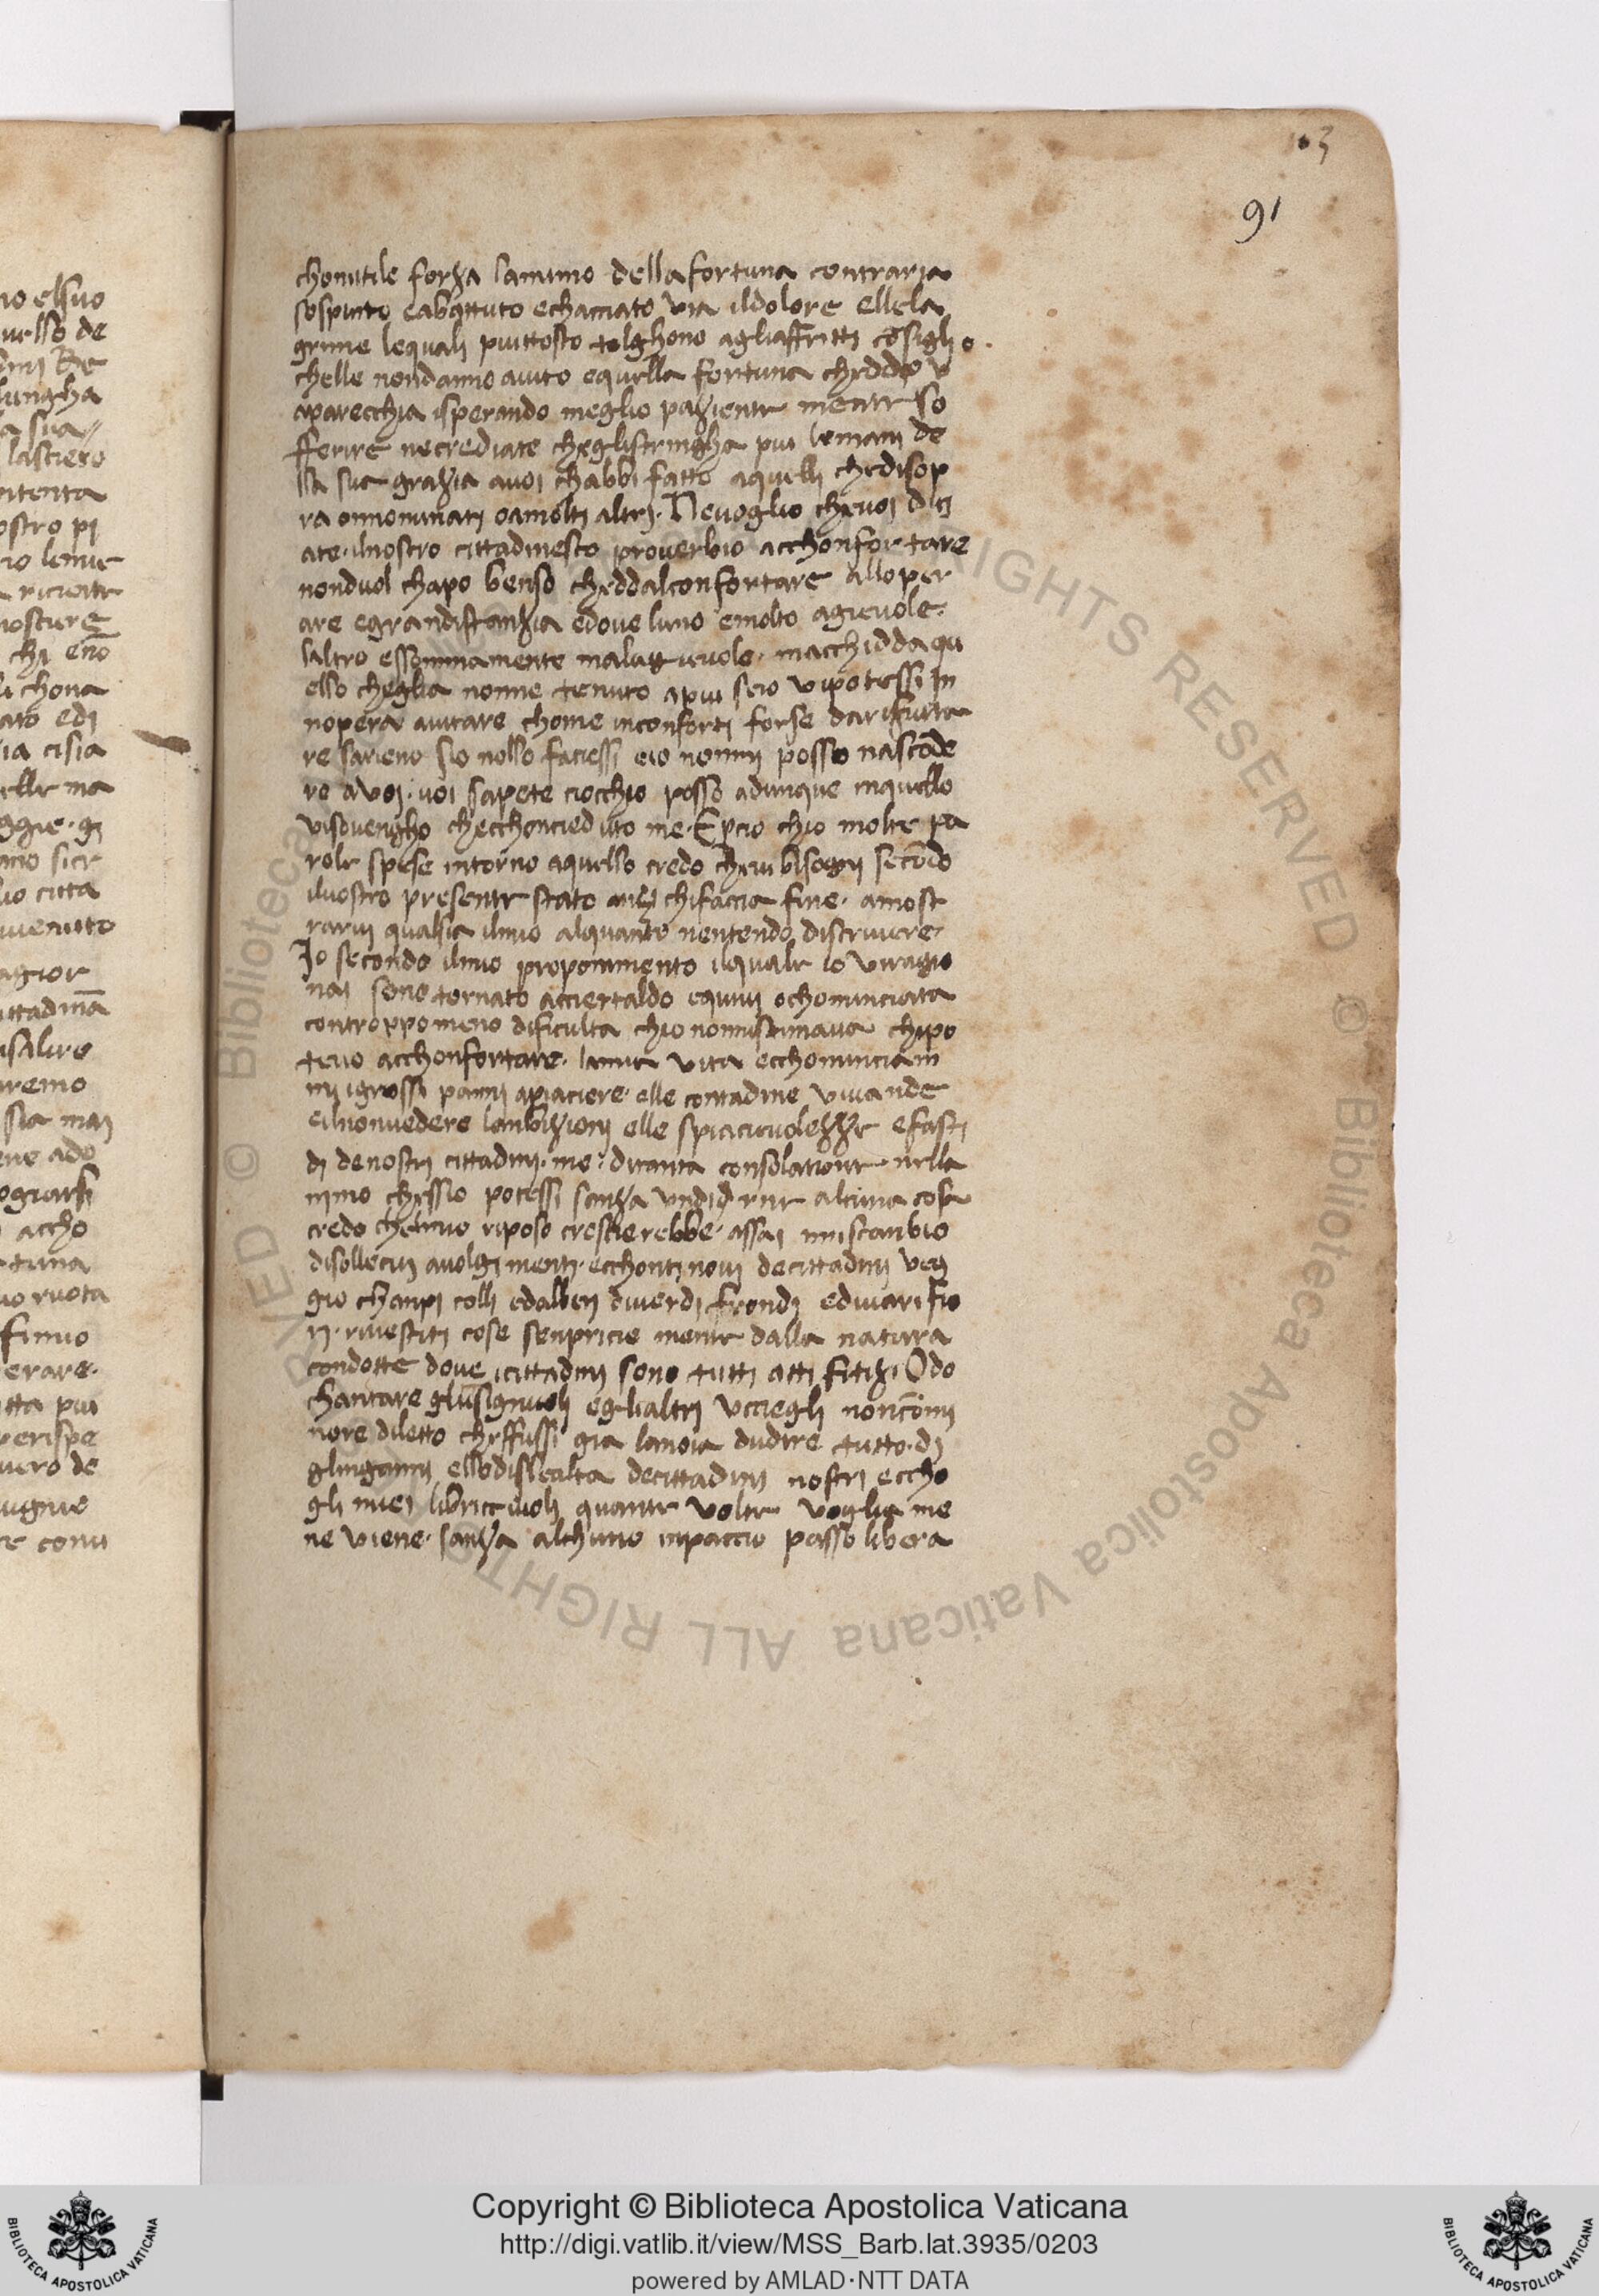 93
91
chonutile forza lanimo della fortuna contraria
sospinto e abattuto e chacciato via il dolore elle la
grime le quali piuttosto tolghono agli affritti cōsiglio.
chelle non danno aiuto e quella fortuna che ddo v
aparecchia isperando meglio pazientemente so
fferire ne crediate che gli stringha piu le mani de
lla sua grazia a voi ch abbi fatto a quelli che di sop
ra o nnominati o a molti altri. Ne voglio che voi diti
ate. il nostro cittadinesco proverbio a cchonfortare
non duol chapo ben so che ddal confortare all oper
are e gran distanzia e dove l uno e molto agievole.
l altro e ssommamente malagievole. ma cchi dda qu
ello ch egli a nonne tenuto a piu se io vi potessi in
n opera aiutare chome in conforti forse da rifiuta
re sarieno s io nollo faciessi e io nommi posso nascōde
re a voi. voi sapete cio cch io posso adunque in quello
vi sovengho che cchoncieduto me. E pcio ch io molte pa
role spese intorno a quello credo che vi bisogni secōdo
il vostro presente stato anzi chi faccia fine. a most
rarvi qual sia il mio alquanto n entendo discrivere.
Io secondo il mio proponimento il quale io vi ragio
nai sono tornato a cciertaldo e qui o chominciata
con troppo meno dificulta ch io nonn istimava che po
tevo a cchonfortare. la mia vita e cchominciam
mi i grossi panni a piaciere. elle contadine vivande
e il non vedere l anbizioni elle spiacievolezze e fasti
di de nostri cittadini. me di tanta consolatione. nell a
nimo che ss io potessi sanza udirne alcuna cosa
credo che l mio riposo crescierebbe. assai in iscanbio
di solleciti avolgimenti. e cchontinovi de cittadini veg
gio chanpi colli ed alberi di verdi frondi e di vari fio
ri. rivestiti cose senpriciemente dalla natura
condotte dove i cittadini sono tutti atti fitizi Odo
chantare gl usignuoli e gli altri ucciegli non cō mi
nore diletto che ffussi gia la noia d udire tutto. di
gl inganni ello dislealta de cittadini nostri e ccho
gli miei libricciuoli quante volte voglia me
ne viene. sanza alchuno inpaccio posso libera
Copyright © Biblioteca Apostolica Vaticana
http://digi.vatlib.it/view/MSS_Barb.lat.3935/0203
powered by AMLAD·NTT DATA